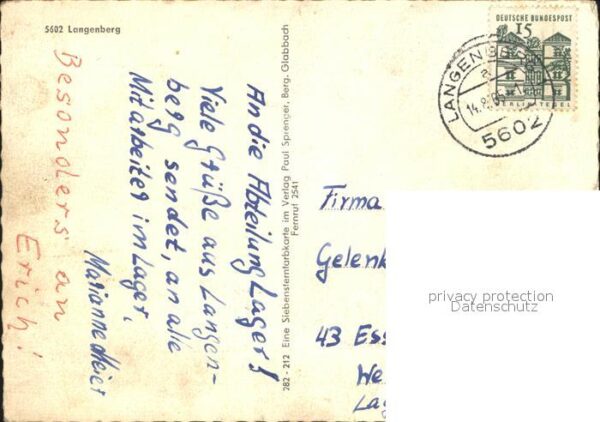 5602 Langenberg
An die Abteilung Lager!
Viele Grüße aus Langen-
berg sendet, an alle
Mitarbeiter im Lager,
Marianne Meier
Besonders an
Erich!
282 - 212 Eine Siebensternfarbkarte im Verlag Paul Sprenger, Berg. Glabbach
Fernruf 2541
DEUTSCHE BUNDESPOST
15
BERLIN-TEGEL
LANGENBERG
5602
Firma
Gelenk
43 Ess
We
Lag
privacy protection
Datenschutz